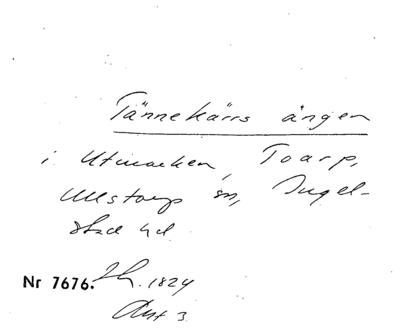 Tännekärrs ängen
i Utmarken, Toarp,
Ullstorp sn, Ingel-
stad hd
Nr 7676. 1824
Akt 3